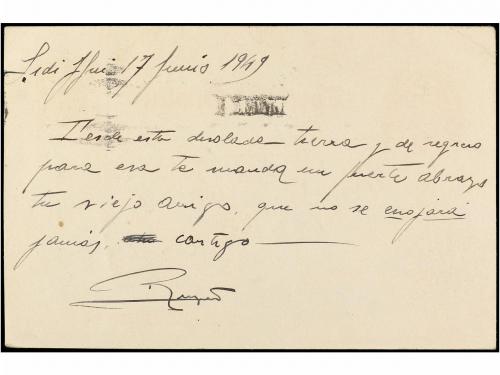 Sidi Ifni 17 Junio 1949
Desde esta desolada tierra y de regreso
para esa te manda un fuerte abrazo
tu viejo amigo, que no se enojará
jamás, contigo